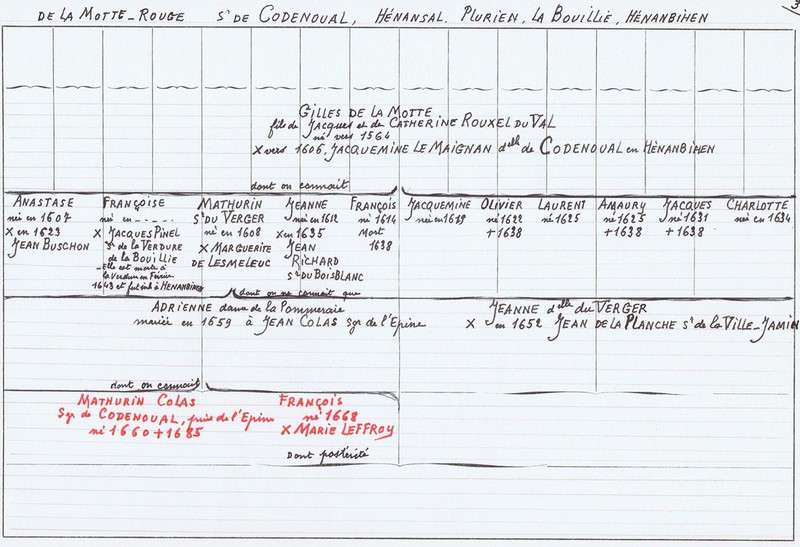 DE LA MOTTE-ROUGE Sr DE CODENOUAL, HÉNANSAL, PLURIEN, LA BOUILLIE, HÉNANBIHEN
3
GILLES DE LA MOTTE
fils de Jacques et de CATHERINE ROUXEL DU VAL
né vers 1564
X vers 1606, JACQUEMINE LE MAIGNAN delle de CODENOUAL en HÉNANBIHEN
dont on connait
ANASTASE
née en 1607
X en 1623
JEAN BUSCHON
FRANÇOISE
née en -.-.-.
X JACQUES PINEL
Sr de la VERDURE
de la BOUILLIE
Elle est morte à
la Verdure en Février
1643 et fut inh à HENANBIHEN
MATHURIN
Sr DU VERGER
né en 1608
X MARGUERITE
DE LESMELEUC
JEANNE
née en 1612
X en 1635
JEAN
RICHARD
Sr DU BOISBLANC
FRANÇOIS
né 1614
Mort
1638
JACQUEMINE
née en 1619
OLIVIER
né 1622
+ 1638
LAURENT
né 1625
AMAURY
né 1625
+ 1638
JACQUES
né 1631
+ 1638
CHARLOTTE
née en 1634
dont on ne connait que
ADRIENNE dame de la Pommeraie
mariée en 1659 à JEAN COLAS Sgr de l'Epine
JEANNE delle du VERGER
X en 1652 JEAN DE LA PLANCHE Sr de la VILLE-JAMIN
dont on connait
MATHURIN COLAS
Sgr de CODENOUAL, puis de l'Epine
né 1660 + 1685
FRANÇOIS
né 1668
X MARIE LEFFROY
Dont postérité